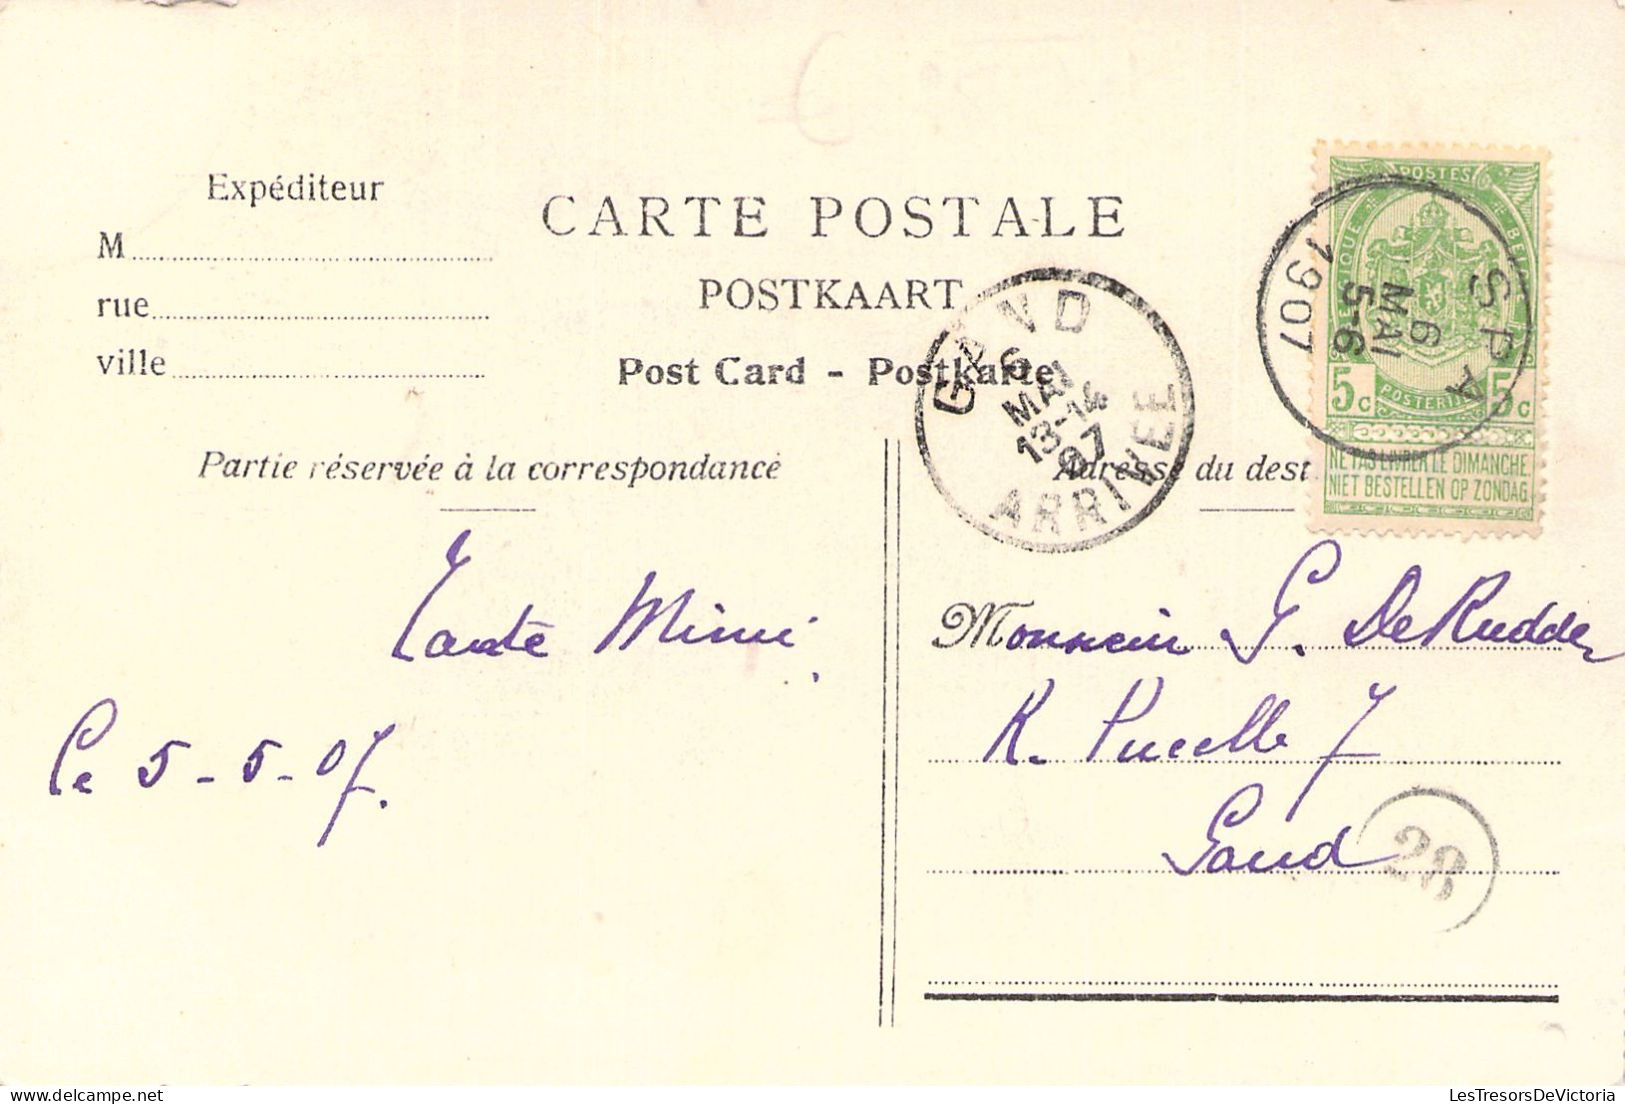 Expéditeur
M
rue
ville
CARTE POSTALE
POSTKAART
Post Card - Postkarte
Partie réservée à la correspondance
Adresse du dest
GAND
6
MAI
13-14
07
ARRIVEE
SPA
6
MAI
5-6
1907
POSTES
BELGIQUE
5c
POSTERIJEN
5c
NE PAS LIVRER LE DIMANCHE
NIET BESTELLEN OP ZONDAG
Tante Mimi.
Le 5-5-07.
Monsieur G. De Rudder
R. Pucelle 7
Gand
28
LesTresorsDeVictoria